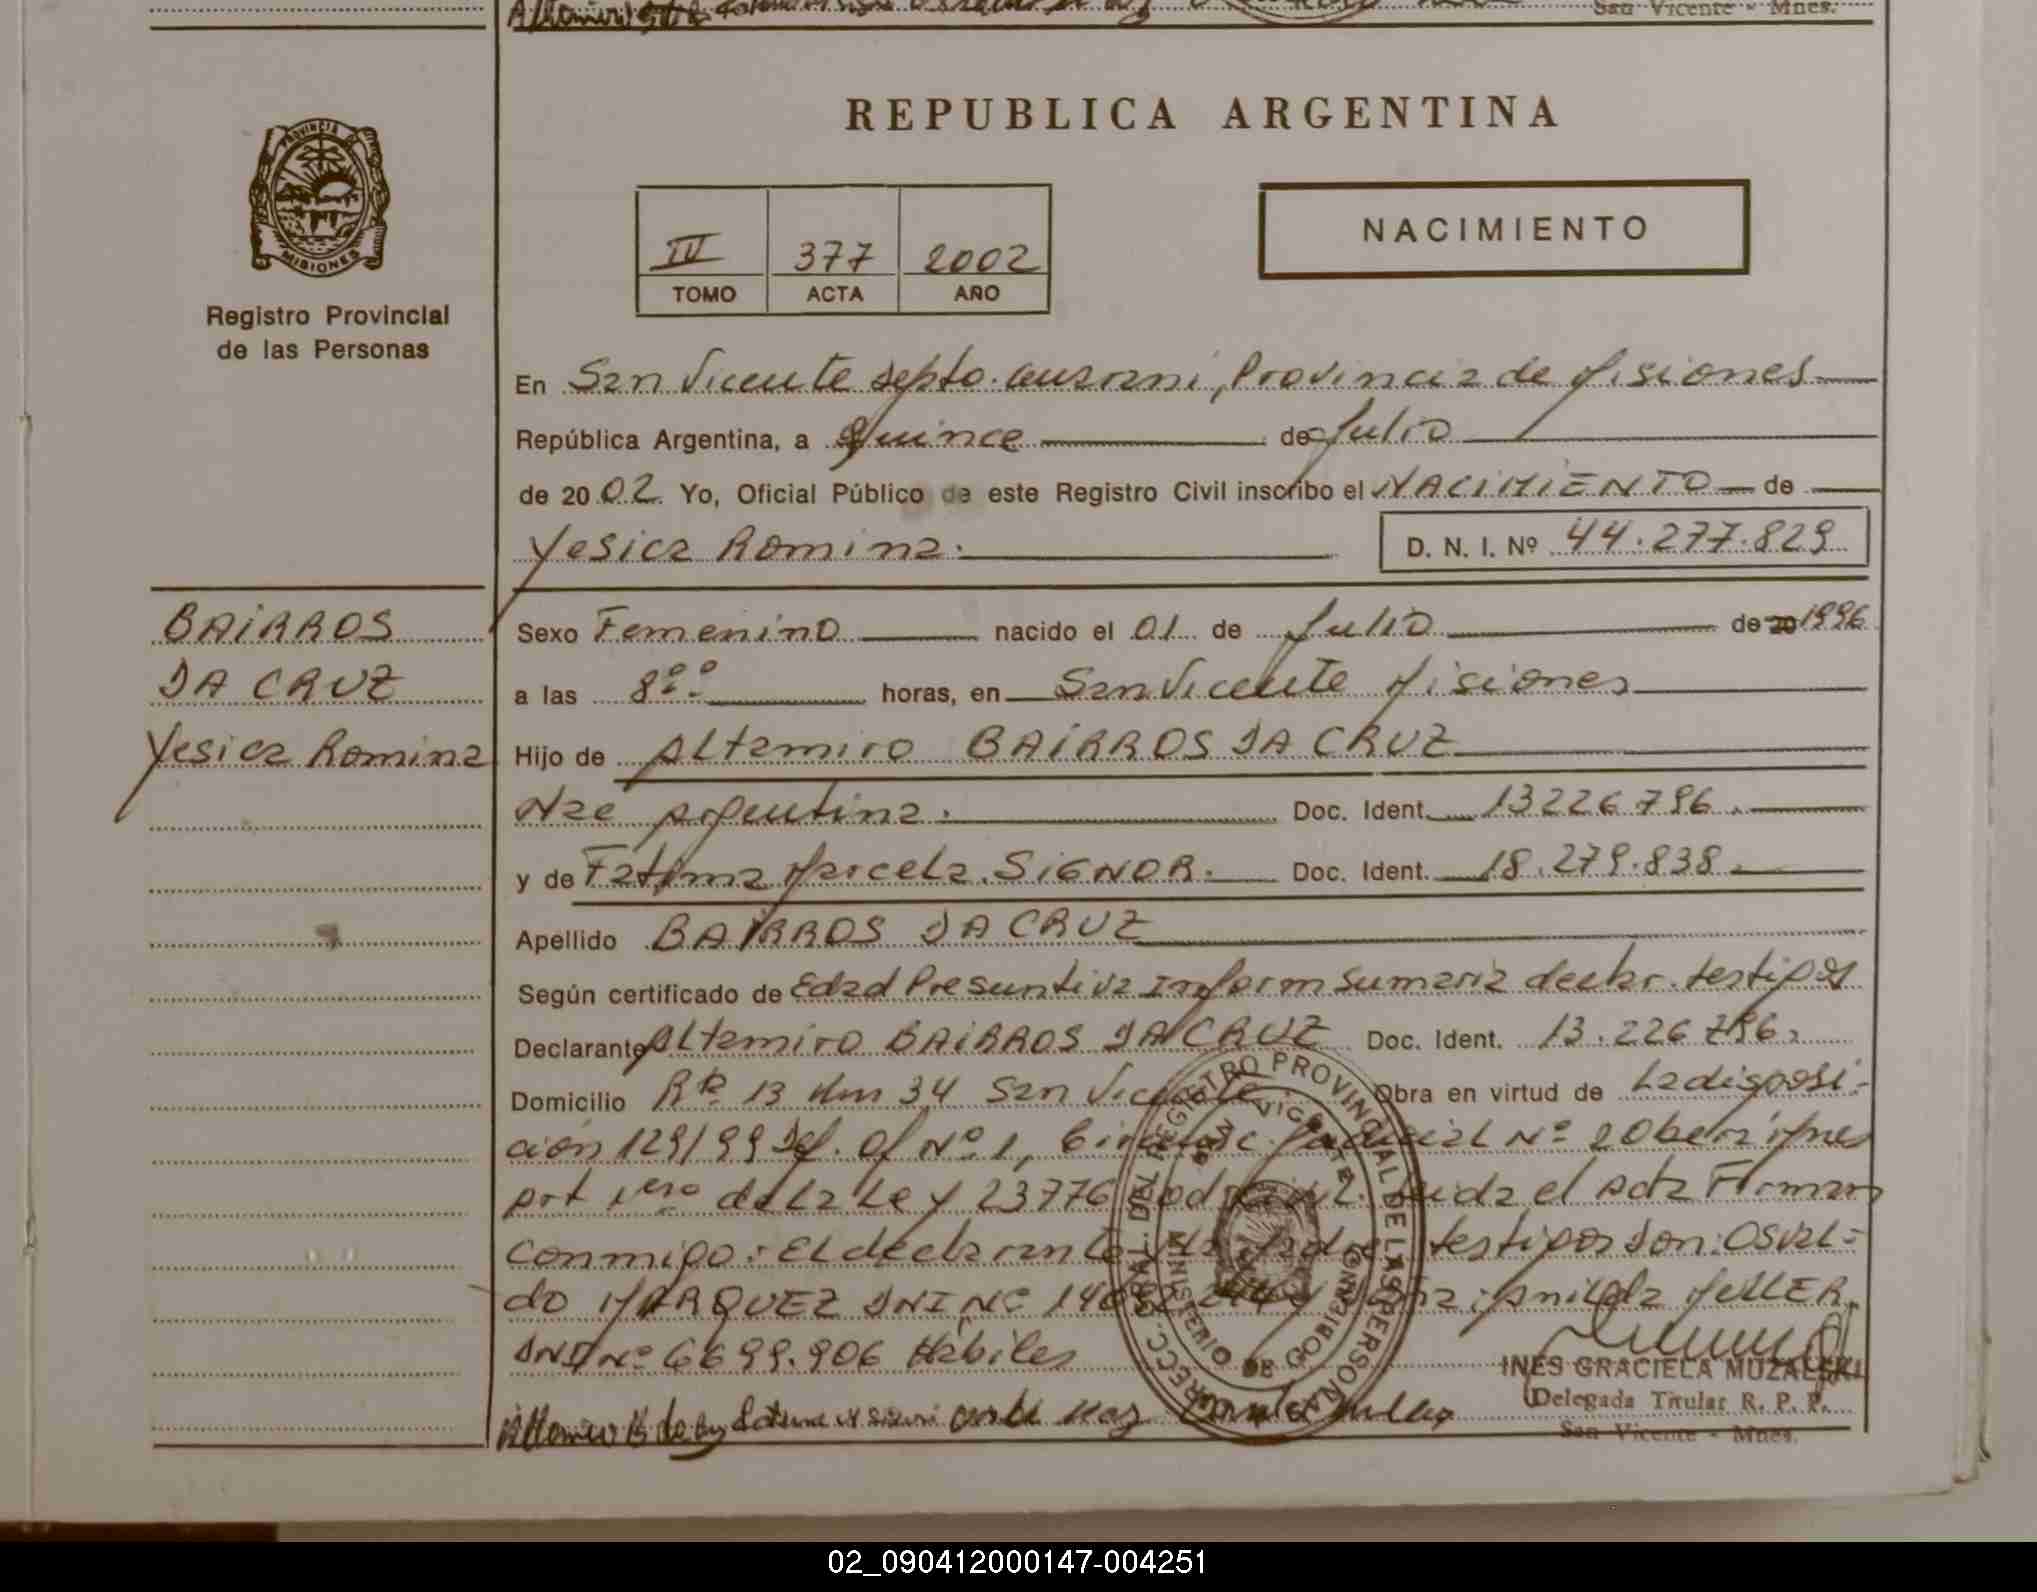 San Vicente - Mnes.
REPUBLICA ARGENTINA
PROVINCIA DE
MISIONES
Registro Provincial
de las Personas
IV 377 2002
TOMO ACTA AÑO
NACIMIENTO
En San Vicente Depto. Guarani, Provincia de Misiones
República Argentina, a Quince de Julio
de 2002. Yo, Oficial Público de este Registro Civil inscribo el NACIMIENTO de
Yesica Romina. D. N. I. Nº 44.277.829
BAIRROS
DA CRUZ
Yesica Romina
Sexo Femenino nacido el 01 de Julio de 20 1996
a las 8:00 horas, en San Vicente Misiones
Hijo de Altamiro BAIRROS DA CRUZ
Nac Argentina. Doc. Ident. 13226796.
y de Fatima Marcela. SIGNOR. Doc. Ident. 18.279.838.
Apellido BAIRROS DA CRUZ
Según certificado de Edad Presuntiva Inform Sumaria declar. testigos
Declarante Altamiro BAIRROS DA CRUZ Doc. Ident. 13.226.796.
Domicilio R. 13 Km 34 San Vicente. Obra en virtud de La disposi-
ción 129/99 Def. Of Nº 1, Circunsc. Judicial Nº 2 Obera Mnes
Art 1ero de La Ley 23776 Leida el Acta Firman
conmigo: El declarante testigos Son: Osval-
do MARQUEZ DNI Nº Anilda MELLER
DNI Nº 6699.906 Habiles
DIRECC. GRAL. DEL REGISTRO PROVINCIAL DE LAS PERSONAS
SAN VICENTE
MINISTERIO DE GOBIERNO
INES GRACIELA MUZALSKI
Delegada Titular R. P. P.
San Vicente - Mnes.
02_090412000147-004251